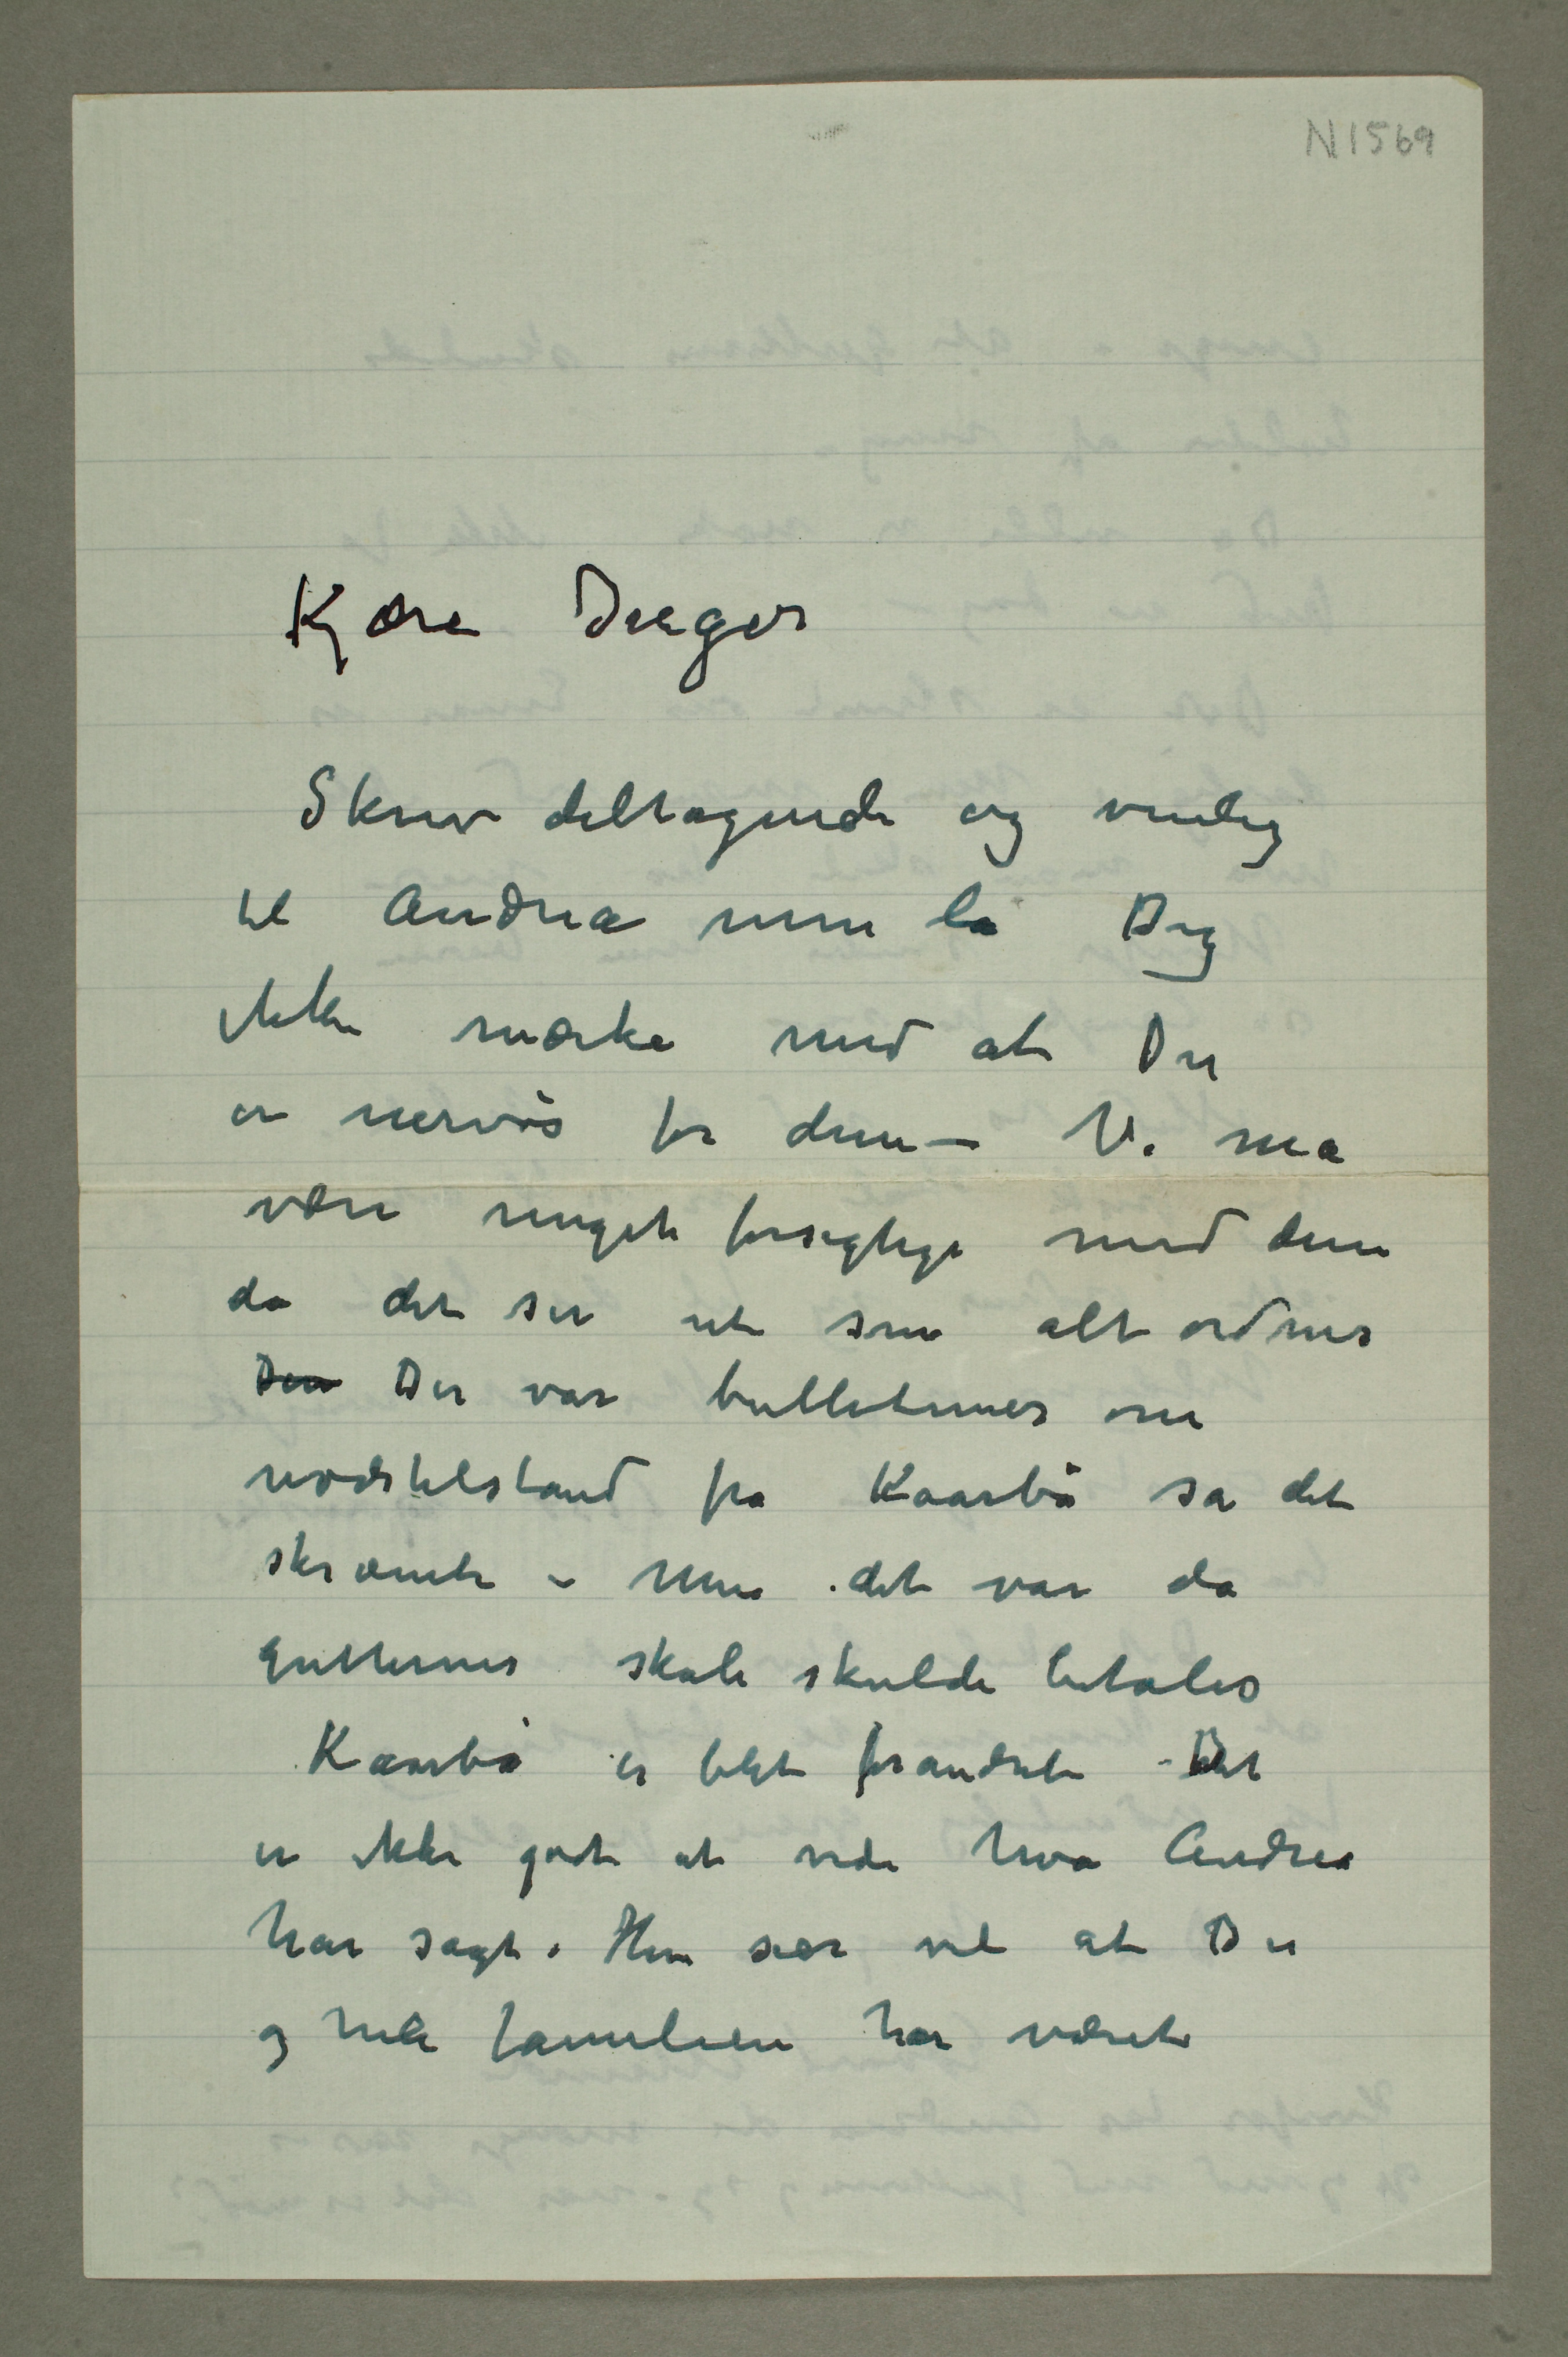 N 1569
Kjære Inger
Skriv deltagende og venlig
til Andrea men la Dig
ikke mærke med at Du
er nervøs for dem – Vi må
være meget forsigtige med dem
da det ser ut som alt ordnes
Den Der var bulletinner om
nødstilstand fra Kaarbø så det
skræmte – Men det var da
gutternes skat skulde betales
Kaarbø er blet forandret – Det
er ikke godt at vide hva Andrea
har sagt. Hun sier vel at Du
og hele familien har været